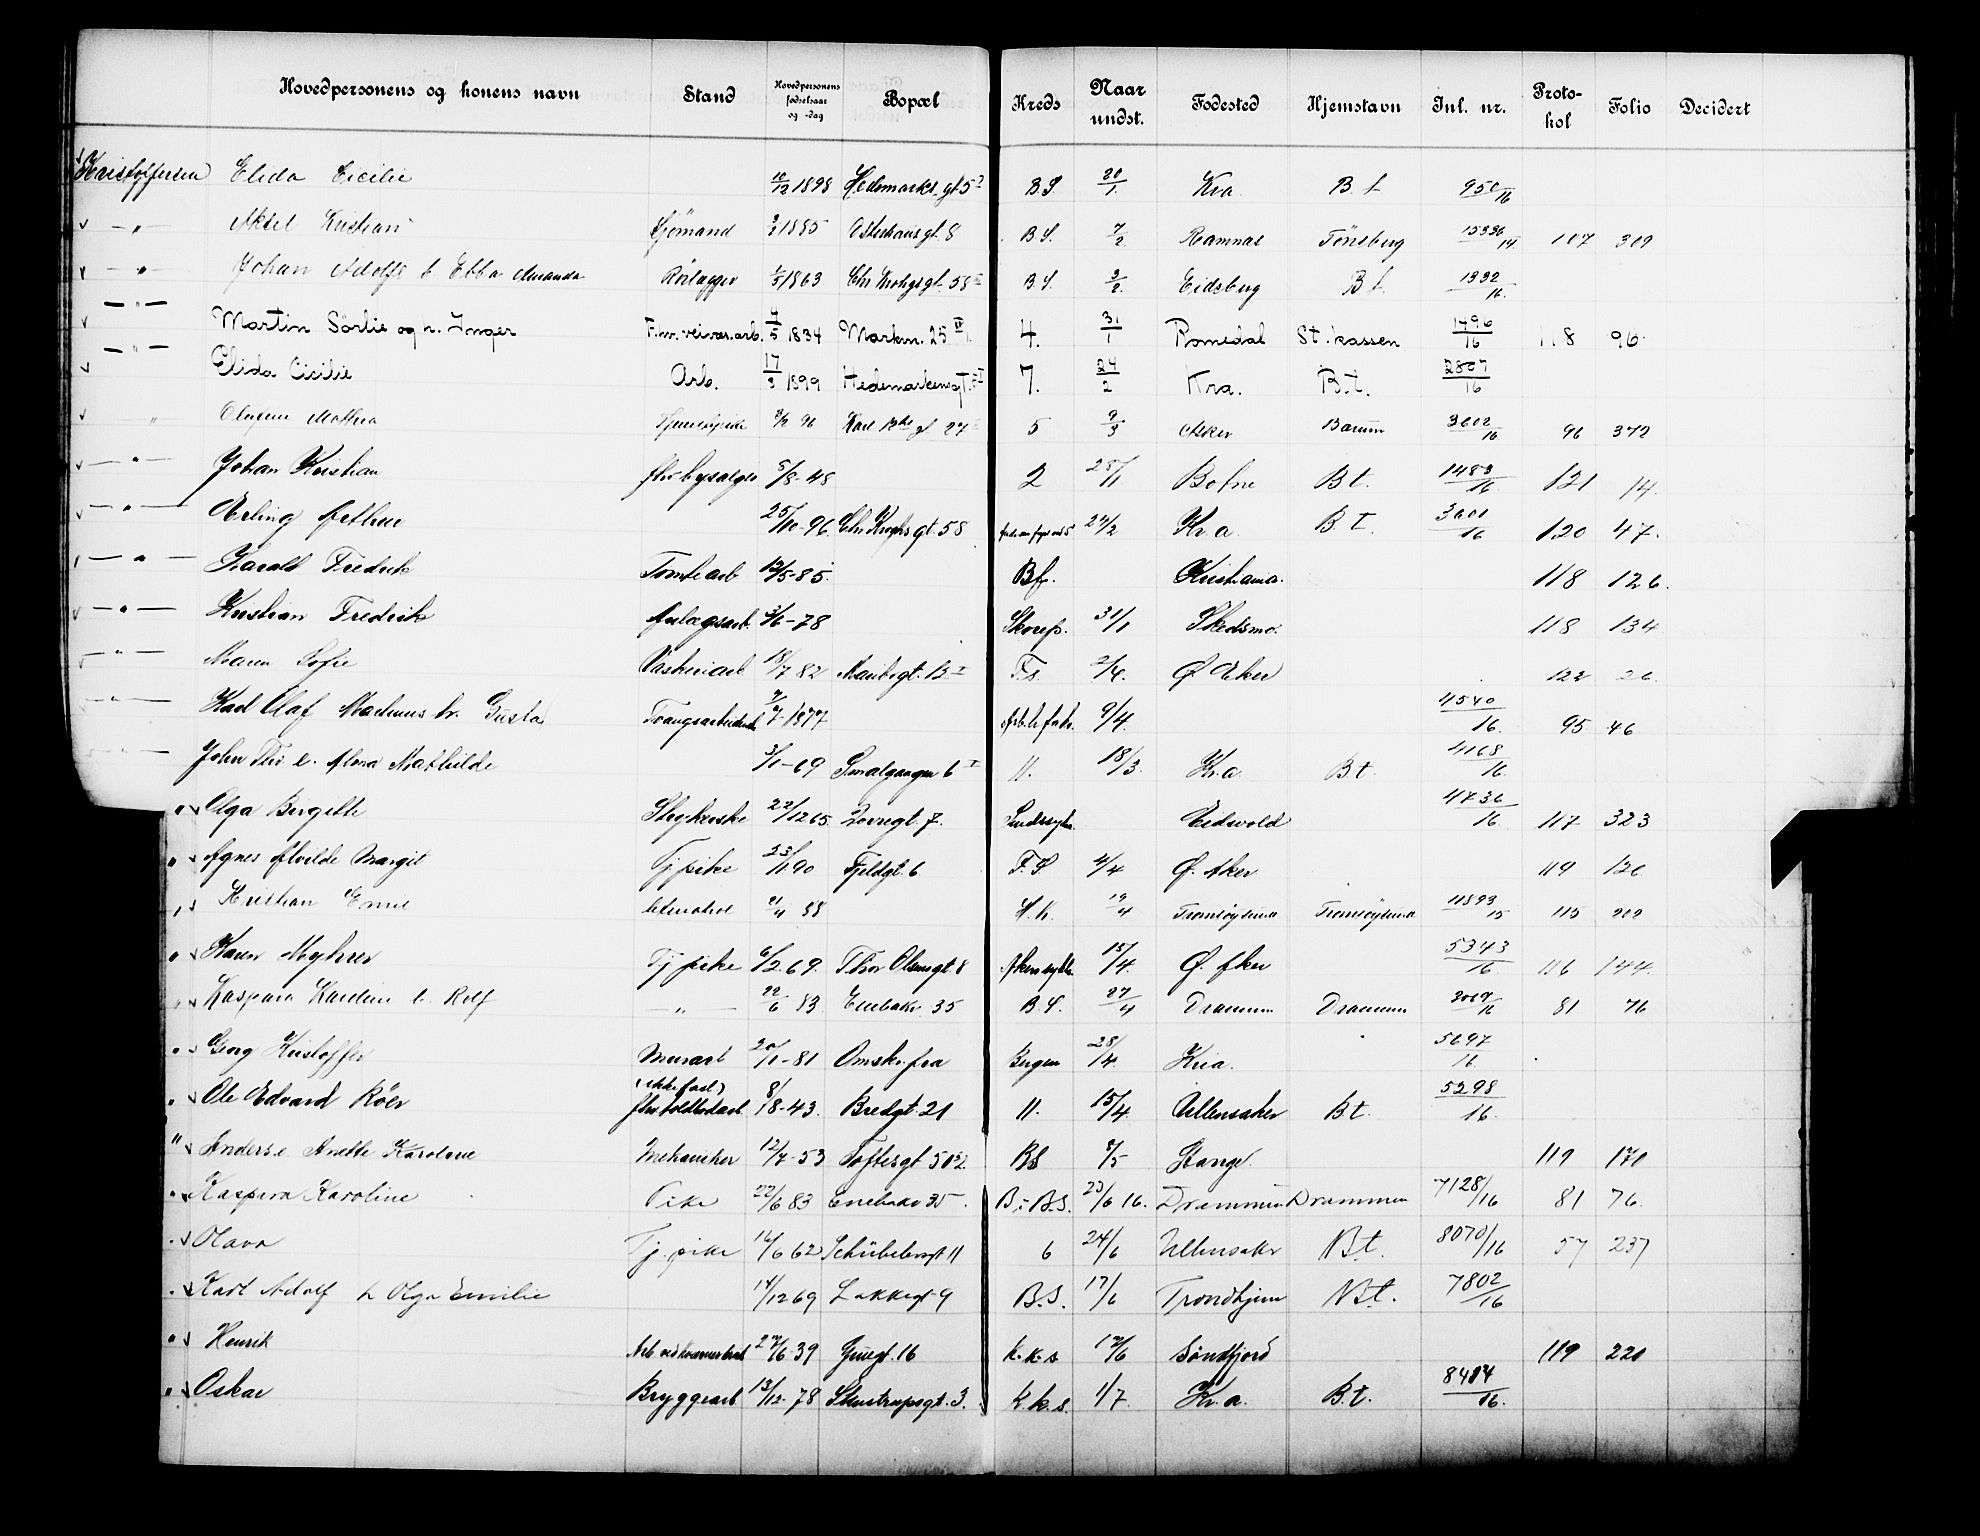 Hovedpersonens og konens navn Stand Hovedpersonens fødselsaar og -dag Bopæl Kreds Naar undst. Fødested Hjemstavn Inl. nr. Proto-kol Folio Decidert
Kristoffersen Elida Cicilie 10/12 1898 Hedemarks gt 5 B S. 20/1. Kra. B. t 950/16
— „ — Aksel Kristian Sjömand 1885 Osterhausgt. 8 B S. 7/2 Ramnæs Tönsberg 15336/14 107 309
— „ — Johan Adolf & h Ebba Amanda Rörlægger 1/5 1863 Chr Krohgs gt. 58 B. S. 3/2. Eidsberg B t. 1332/16.
— „ — Martin Sörlie og h. Inger F.hv. veivæs.arb. 4/5 1834 Markvn. 25 IV 4. 31/1 Romedal St. kassen 1496/16 118 96.
— „ — Elida Cicilie Arb. 17/3 1899 Hedemarkensgt. 7. 24/2 Kra. B.t. 2807/16
„ Olufine Mathea Tjenestepike 96 Karl 12tes gt 27 5 9/3 Asker Bærum 3602/16 96 372
— „ — Johan Kristian fhv bysælger 5/8-48 2 28/1 Botne Bt. 1483/16. 121 14.
— „ — Erling Arthur 25/10-96. Chr Krohgs gt. 58 24/2 Kr.a B.t. 3001/16 120 47.
— „ — Harald Fredrik Tomtearb 12/5-85. Bf. Kristiania. 118 126.
— „ — Kristian Fredrik Anlægsarb. 3/6-78 Skorep. 31/1 Skedsmo. 118 134
— „ — Maren Sofie Væskeriarb 18/7 82 Maribgt. 13 I F.s. 2/4. Ø Aker 122 26.
— „ — Karl Olaf Mathinus h. Gusta Trangsarbeider 7/7-1877 Arb.h.fnk. 9/4. 4540/16. 95 46
— „ — John Thv e. Alma Mathilde 3/1-69 Smalgangen 6 I 11. 18/3. Kr.a. Bt. 4168/16.
„ Olga Bergitte Strykerske 22/12 65. Lovnegt. 7. Sindssyk. Eidsvold 4736/16. 117 323
„ Agnes Alvilde Margit Tj pike 23/11 90 Fjeldgt. 6 F.S 4/4 Ø. Aker 119 120
„ Kristian Emil 21/4 88 H.k. 19/4 Tromsøysund Tromsøysund 11893/15 115 202
„ Karen Myhrer Tj pike 6/2 69. Thor Olsensgt. 8 Akers sykh. 15/4. Ø. Aker 5343/16. 116 144.
„ Kaspara Karoline b. Rolf — „ — 22/6 83 Enebakv 35 B. S. 27/4 Drammen Drammen 3069/16 81 76
„ Georg Kristoffer Murarb 20/1-81 Omskifra Bergen 28/4. Kria. 5697/16.
„ Ole Edvard Röer (ikke fast) fhv toldbodarb 8/8-43. Bredgt. 21 11. 15/4 Ullensaker Bt. 5298/16.
„ Anders e Anette Karoline Mekaniker 12/7-53 Toftesgt 50 2. BS 8/5 Stange. 119 170
„ Kaspara Karoline Pike 22/6 83 Enebakv 35. B. i B.S. 23/6 16. Drammen Drammen 7128/16 81 76.
„ Olava Tj. pike 16/6 62 Schübelersgt 11 6 24/6 Ullensaker N B t. 8070/16 57 237
„ Karl Adolf h Olga Emilie 14/12 69 Lakkegt 9 B.S. 17/6 Trondhjem N B t. 7802/16
„ Henrik 27/6-39 Gruegt. 16 k.k.s 12/6 Söndfjord 119 220
„ Oskar Bryggearb 13/12-78 Stenstrupsgt. 3. k.k.s. 1/7. Kr.a. B.t. 8414/16.